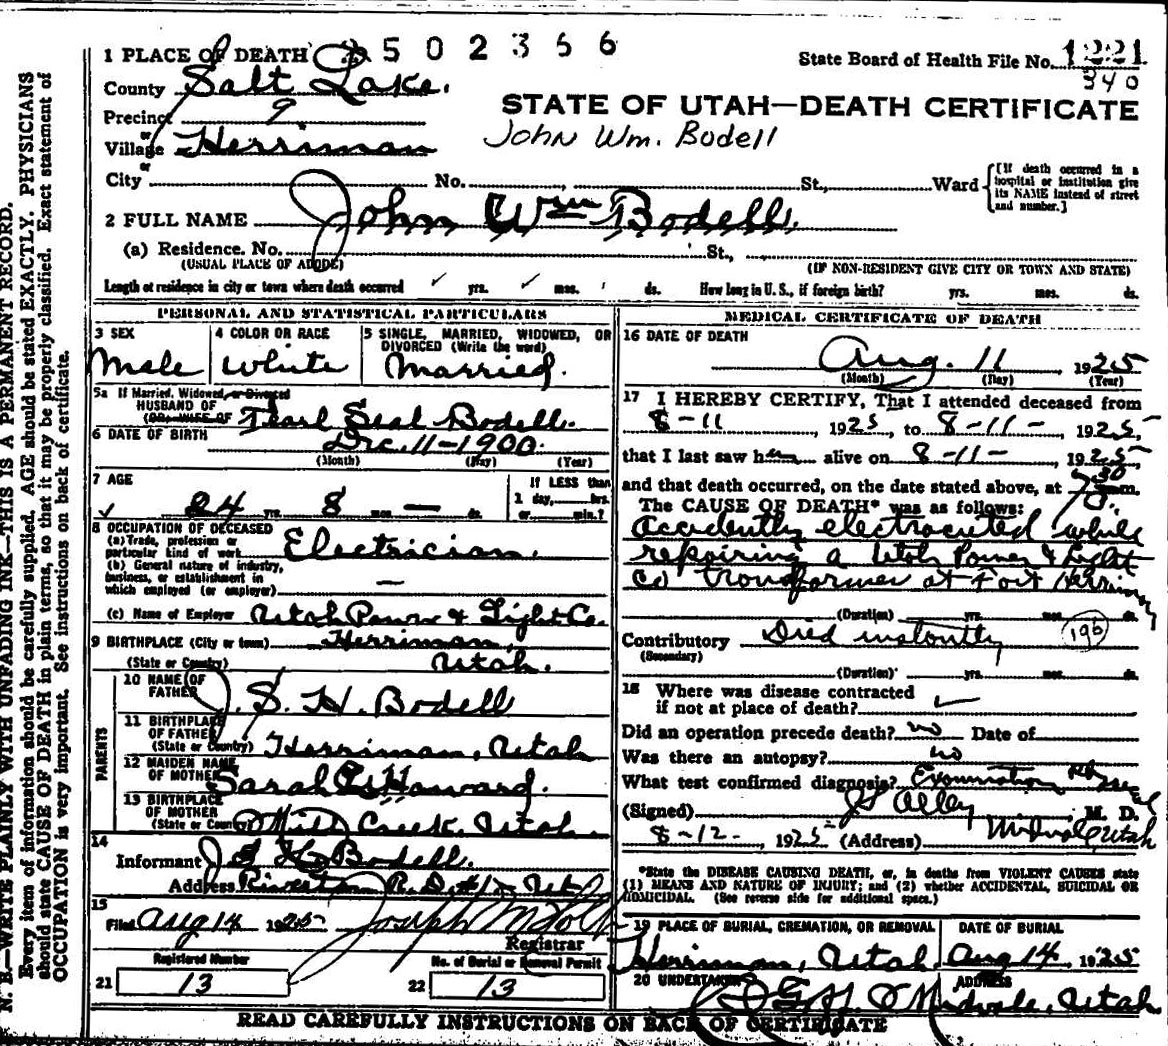 1 PLACE OF DEATH 2502366
State Board of Health File No. 1221
340
County Salt Lake.
STATE OF UTAH—DEATH CERTIFICATE
Precinct 9
John Wm. Bodell
or
Village Herriman
or
City No. , St., Ward [If death occurred in a hospital or institution give its NAME instead of street and number.]
2 FULL NAME John Wm Bodell.
(a) Residence. No. St.,
(USUAL PLACE OF ABODE) (IF NON-RESIDENT GIVE CITY OR TOWN AND STATE)
Length of residence in city or town where death occurred yrs. mos. ds. How long in U. S., if foreign birth? yrs. mos. ds.
PERSONAL AND STATISTICAL PARTICULARS
3 SEX
Male
4 COLOR OR RACE
White
5 SINGLE, MARRIED, WIDOWED, OR
DIVORCED (Write the word)
Married.
5a If Married, Widowed, or Divorced
HUSBAND OF
(OR) WIFE OF Pearl Seal Bodell.
6 DATE OF BIRTH Dec. 11-1900.
(Month) (Day) (Year)
7 AGE
24 yrs. 8 mos. — ds.
If LESS than
1 day, hrs.
or min.?
8 OCCUPATION OF DECEASED
(a) Trade, profession or
particular kind of work Electrician.
(b) General nature of industry,
business, or establishment in
which employed (or employer) —
(c) Name of Employer Utah Power & Light Co.
9 BIRTHPLACE (City or town) Herriman,
(State or Country) Utah.
PARENTS
10 NAME OF
FATHER J. S. H. Bodell
11 BIRTHPLACE
OF FATHER
(State or Country) Herriman, Utah
12 MAIDEN NAME
OF MOTHER Sarah Howard.
13 BIRTHPLACE
OF MOTHER
(State or Country) Mill Creek. Utah.
14
Informant J S H Bodell.
Address Riverton R. D. #1 Utah
15
Filed Aug 14 1925 Joseph M
Registrar
Registered Number
No. of Burial or Removal Permit
21 13
22 13
MEDICAL CERTIFICATE OF DEATH
16 DATE OF DEATH
Aug. 11 1925
(Month) (Day) (Year)
17 I HEREBY CERTIFY, That I attended deceased from
8-11, 1925, to 8-11-, 1925,
that I last saw him alive on 8-11-, 1925
and that death occurred, on the date stated above, at 7 30 m.
The CAUSE OF DEATH* was as follows:
Accidently electrocuted while
repairing a Utah Power & Light
Co transformer at Fort Herriman
(Duration) yrs. mos. ds.
Contributory Died instantly 196
(Secondary)
(Duration) yrs. mos. ds.
18 Where was disease contracted
if not at place of death?
Did an operation precede death? no Date of
Was there an autopsy? no
What test confirmed diagnosis? Examination
(Signed) Alley M. D.
8-12-, 1925 (Address) Midvale, Utah
*State the DISEASE CAUSING DEATH, or, in deaths from VIOLENT CAUSES state
(1) MEANS AND NATURE OF INJURY; and (2) whether ACCIDENTAL, SUICIDAL OR
HOMICIDAL. (See reverse side for additional space.)
19 PLACE OF BURIAL, CREMATION, OR REMOVAL
Herriman, Utah
DATE OF BURIAL
Aug 14 1925
20 UNDERTAKER
ADDRESS
Midvale, Utah
READ CAREFULLY INSTRUCTIONS ON BACK OF CERTIFICATE
N. B.—WRITE PLAINLY WITH UNFADING INK—THIS IS A PERMANENT RECORD.
Every item of information should be carefully supplied. AGE should be stated EXACTLY. PHYSICIANS
should state CAUSE OF DEATH in plain terms, so that it may be properly classified. Exact statement of
OCCUPATION is very important. See instructions on back of certificate.